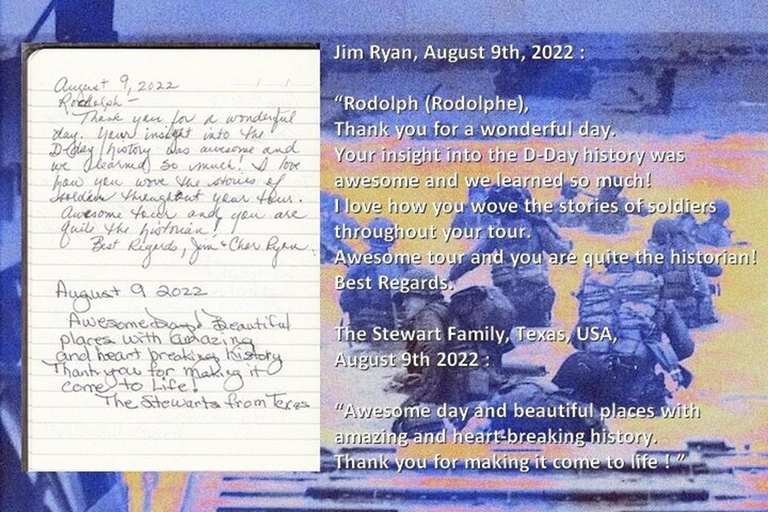 August 9, 2022
Rodolph -
Thank you for a wonderful
day. Your insight into the
D-day history was awesome and
we learned so much! I love
how you wove the stories of
soldiers throughout your tour.
Awesome tour and you are
quite the historian!
Best Regards, Jim & Cher Ryan.
August 9 2022
Awesome Day! Beautiful
places with amazing
and heart breaking history
Thank you for making it
come to life!
The Stewarts from Texas
Jim Ryan, August 9th, 2022 :
“Rodolph (Rodolphe),
Thank you for a wonderful day.
Your insight into the D-Day history was
awesome and we learned so much!
I love how you wove the stories of soldiers
throughout your tour.
Awesome tour and you are quite the historian!
Best Regards.
The Stewart Family, Texas, USA,
August 9th 2022 :
“Awesome day and beautiful places with
amazing and heart-breaking history.
Thank you for making it come to life ! ”